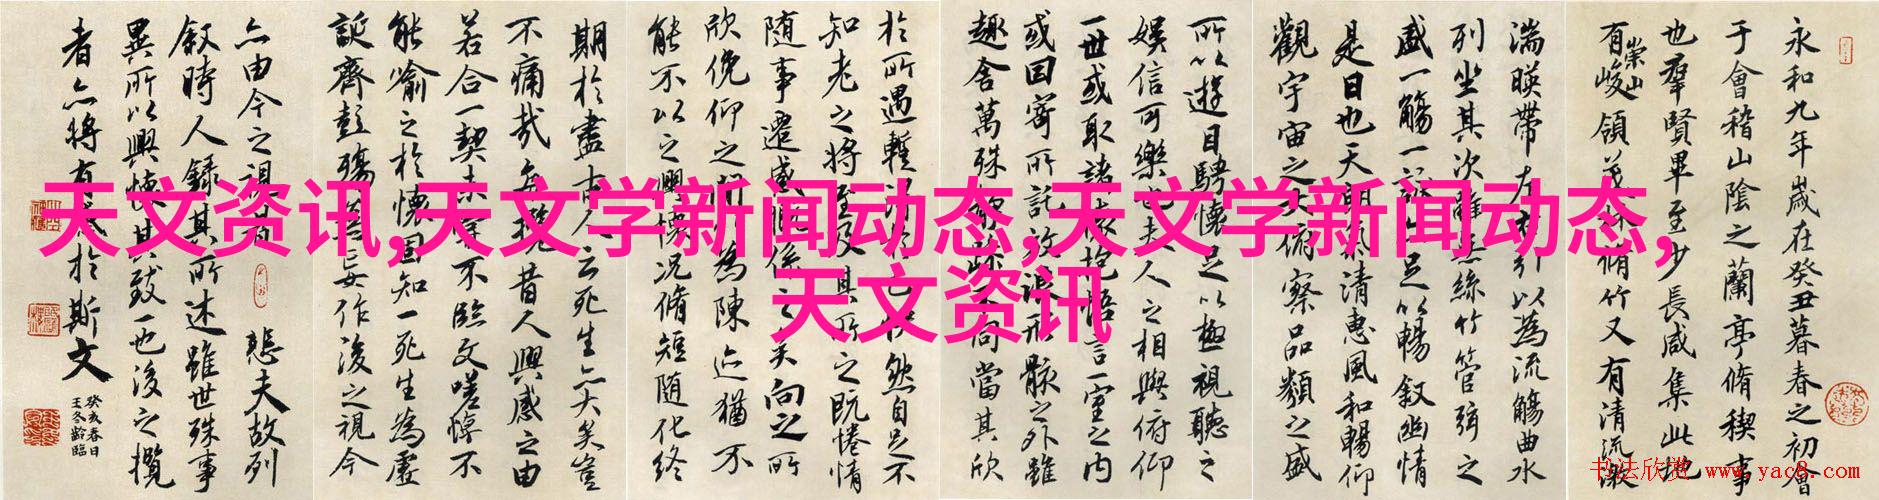 永和九年歲在癸丑暮春之初會
于會稽山陰之蘭亭脩稧事
也羣賢畢至少長咸集此地
有崇山峻領茂林脩竹又有清流激
湍暎帶左右引以為流觴曲水
列坐其次雖無絲竹管弦之
盛一觴一詠亦足以暢叙幽情
是日也天朗氣清惠風和暢仰
觀宇宙之大俯察品類之盛
所以遊目騁懷足以極視聽之
娛信可樂也夫人之相與俯仰
一世或取諸懷抱悟言一室之内
或因寄所託放浪形骸之外雖
趣舍萬殊靜躁不同當其欣
於所遇暫得於己快然自足不
知老之將至及其所之既惓情
随事遷感慨係之矣向之所
欣俛仰之間以為陳迹猶不
能不以之興懷况脩短随化終
期於盡古人云死生亦大矣豈
不痛哉每攬昔人興感之由
若合一契未嘗不臨文嗟悼不
能喻之於懷固知一死生為虛
誕齊彭殤為妄作後之視今
亦由今之視昔
悲夫故列
叙時人錄其所述雖世殊事
異所以興懷其致一也後之攬
者亦將有感於斯文
癸亥春日
王冬齡臨
天文资讯,天文学新闻动态,天文学新闻动态,
天文资讯
书法欣赏 www.yac8.com